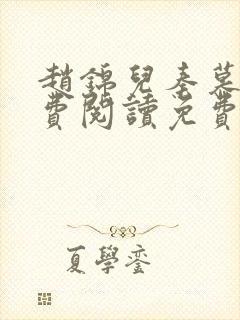 趙錦兒秦慕
費閱讀免費
夏學鑾